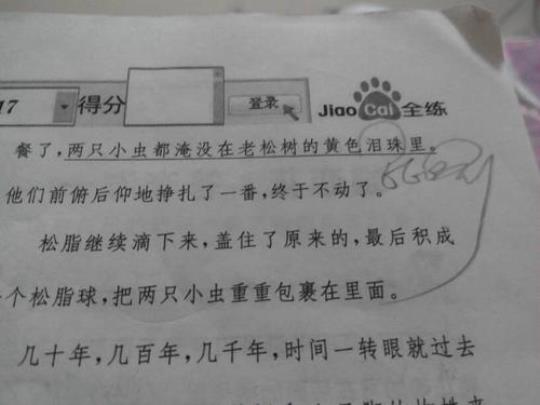 17 得分 登录 Jiao Cai 全练
餐了，两只小虫都淹没在老松树的黄色泪珠里。
他们前俯后仰地挣扎了一番，终于不动了。
松脂继续滴下来，盖住了原来的，最后积成
个松脂球，把两只小虫重重包裹在里面。
几十年，几百年，几千年，时间一转眼就过去